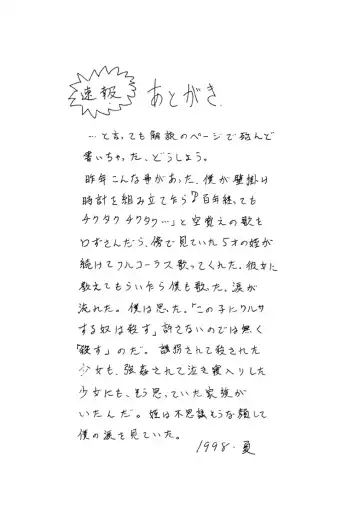 速報 あとがき.
…と言っても解説のページで殆んど
書いちゃった、どうしよう。
昨年こんな事があった、僕が壁掛け
時計を組み立て乍ら「♪百年経っても
チクタクチクタク…」と空覚えの歌を
口ずさんだら、傍で見ていた5才の姪が
続けてフルコーラス歌ってくれた、彼女に
教えてもらい乍ら僕も歌った。涙が
流れた。僕は思った。「この子にワルサ
する奴は殺す」許さないのでは無く
「殺す」のだ。誘拐されて殺された
少女も、強姦されて泣き寝入りした
少女にも、そう思っていた家族が
いたんだ。姪は不思議そうな顔して
僕の涙を見ていた。
1998.夏